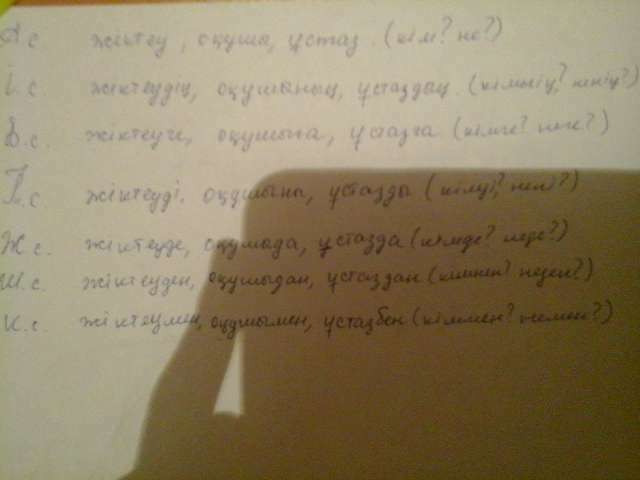 А.с жіктеу, оқушы, ұстаз. (кім? не?)
І.с. жіктеудің, оқушының, ұстаздың. (кімнің? ненің?)
Б.с. жіктеуге, оқушыға, ұстазға. (кімге? неге?)
Т.с жіктеуді. оқушыны, ұстазды (кімді? нені?)
Ж.с. жіктеуде, оқушыда, ұстазда (кімде? неде?)
Ш.с. жіктеуден, оқушыдан, ұстаздан (кімнен? неден?)
К.с. жіктеумен, оқушымен, ұстазбен (кіммен? немен?)